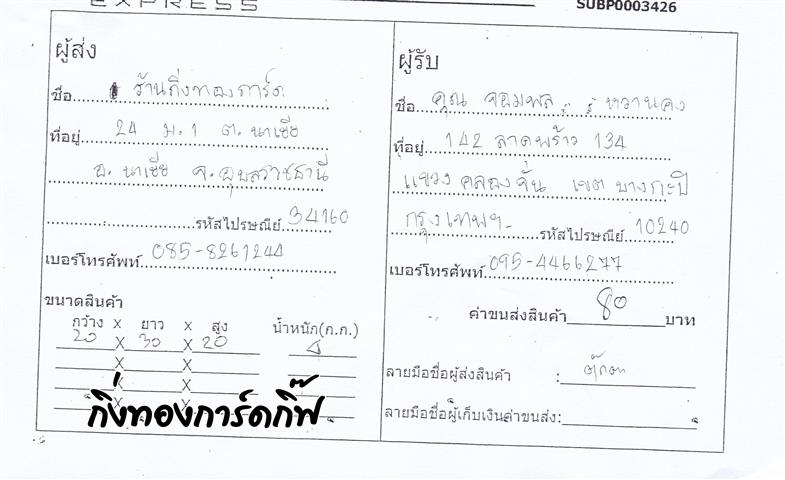 EXPRESS
SUBP0003426
ผู้ส่ง
ชื่อ ร้านกิ่งทองการ์ด
ที่อยู่ 24 ม.1 ต. นาเยีย
อ. นาเยีย จ. อุบลราชธานี
รหัสไปรษณีย์ 34160
เบอร์โทรศัพท์ 085-8261244
ขนาดสินค้า
กว้าง X ยาว X สูง น้ำหนัก(ก.ก.)
20 X 30 X 20 4
X X
X X
X X
กิ่งทองการ์ดกิ๊ฟ
ผู้รับ
ชื่อ คุณ จอมพล หวานคง
ที่อยู่ 142 ลาดพร้าว 134
แขวง คลองจั่น เขต บางกะปิ
กรุงเทพฯ รหัสไปรษณีย์ 10240
เบอร์โทรศัพท์ 095-4466277
ค่าขนส่งสินค้า 80 บาท
ลายมือชื่อผู้ส่งสินค้า : ตุ๊กตา
ลายมือชื่อผู้เก็บเงินค่าขนส่ง: